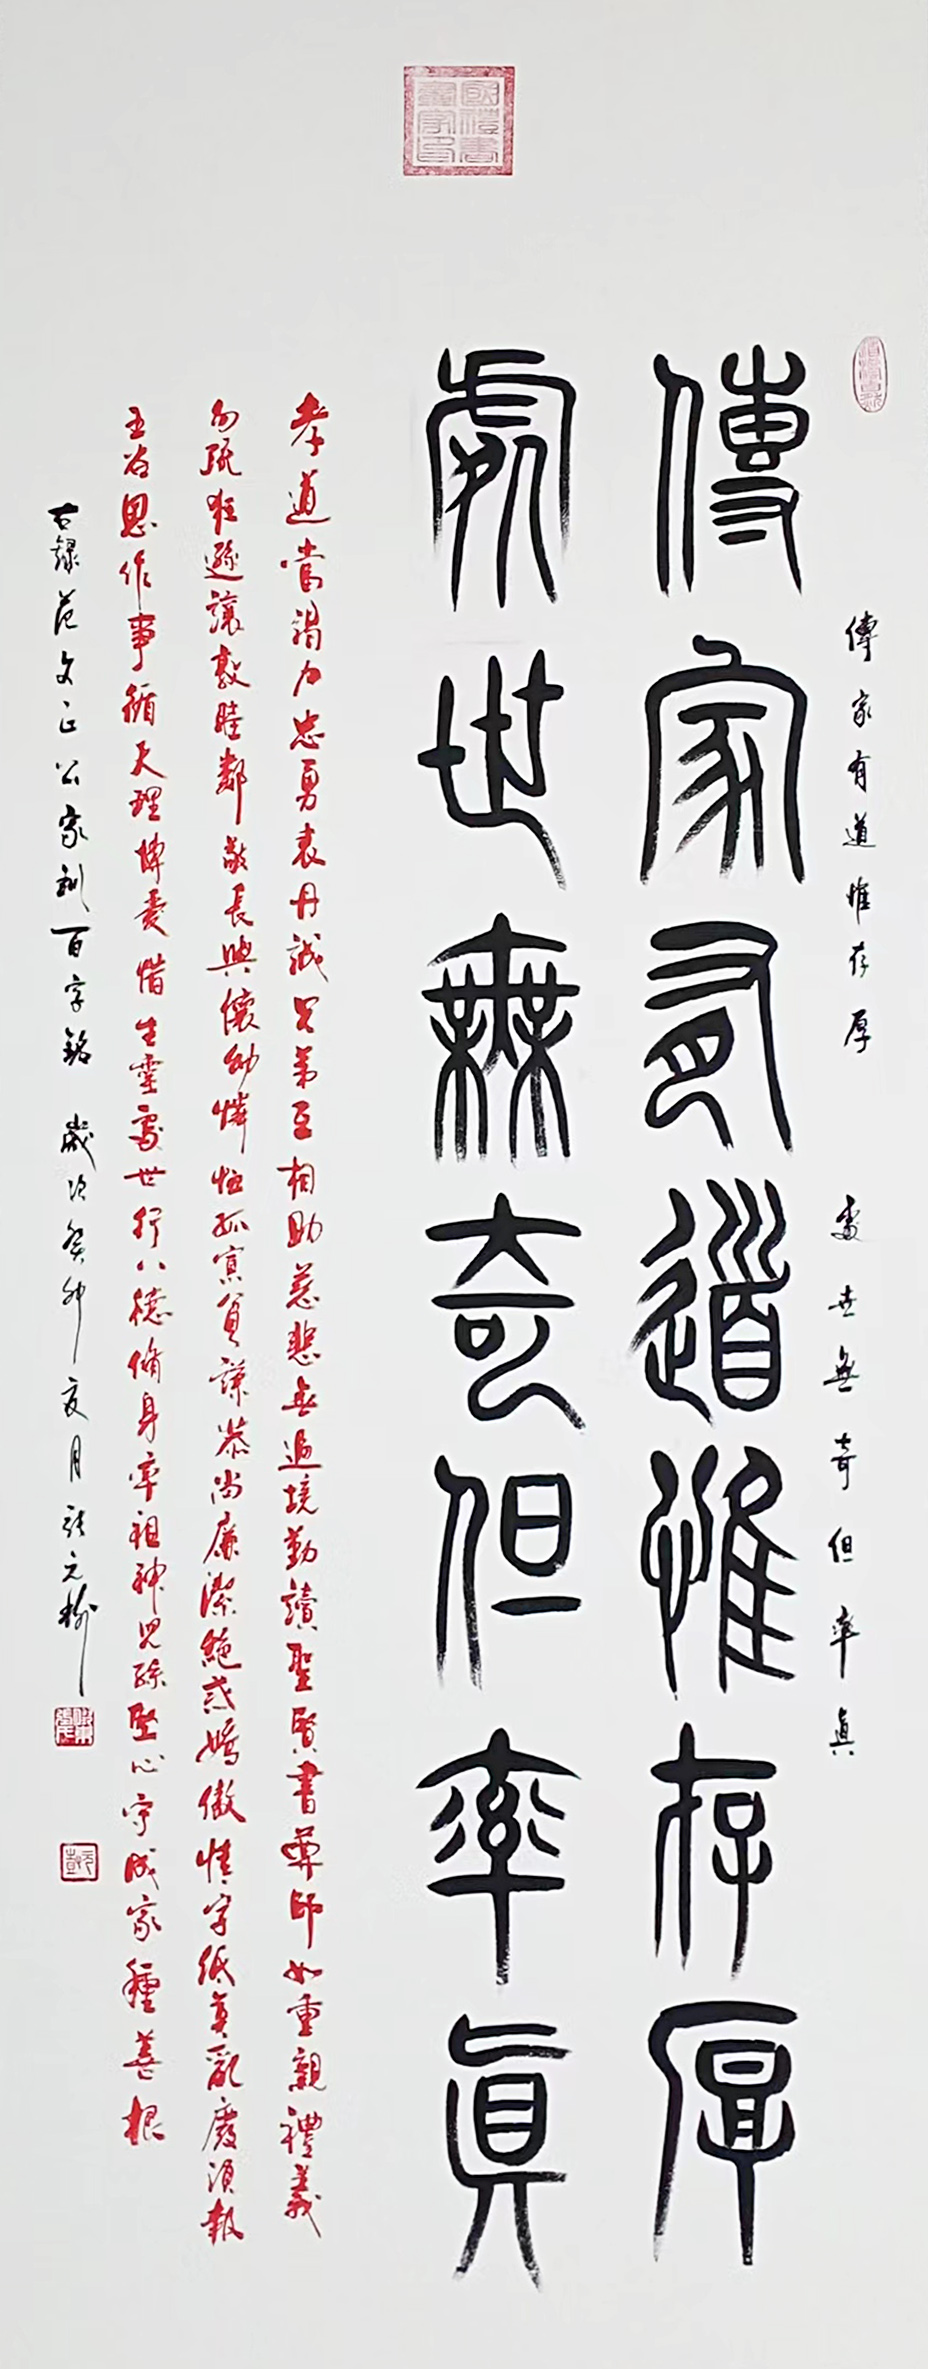 國禮書畫家印
傳家有道惟存厚 處世無奇但率眞
傳家有道惟存厚
處世無奇但率眞
孝道當竭力忠勇表丹誠兄弟互相助慈悲無過境勤讀聖賢書尊師如重親禮義
勿疏狂遜讓敦睦鄰敬長與懷幼憐恤孤寡貧謙恭尚廉潔絕戒嬌傲情字紙莫亂廢須報
五谷恩作事循天理博愛惜生靈處世行八德脩身率祖神兒孫堅心守成家種善根
右録范文正公家訓百字銘 歲次癸卯夏月張元